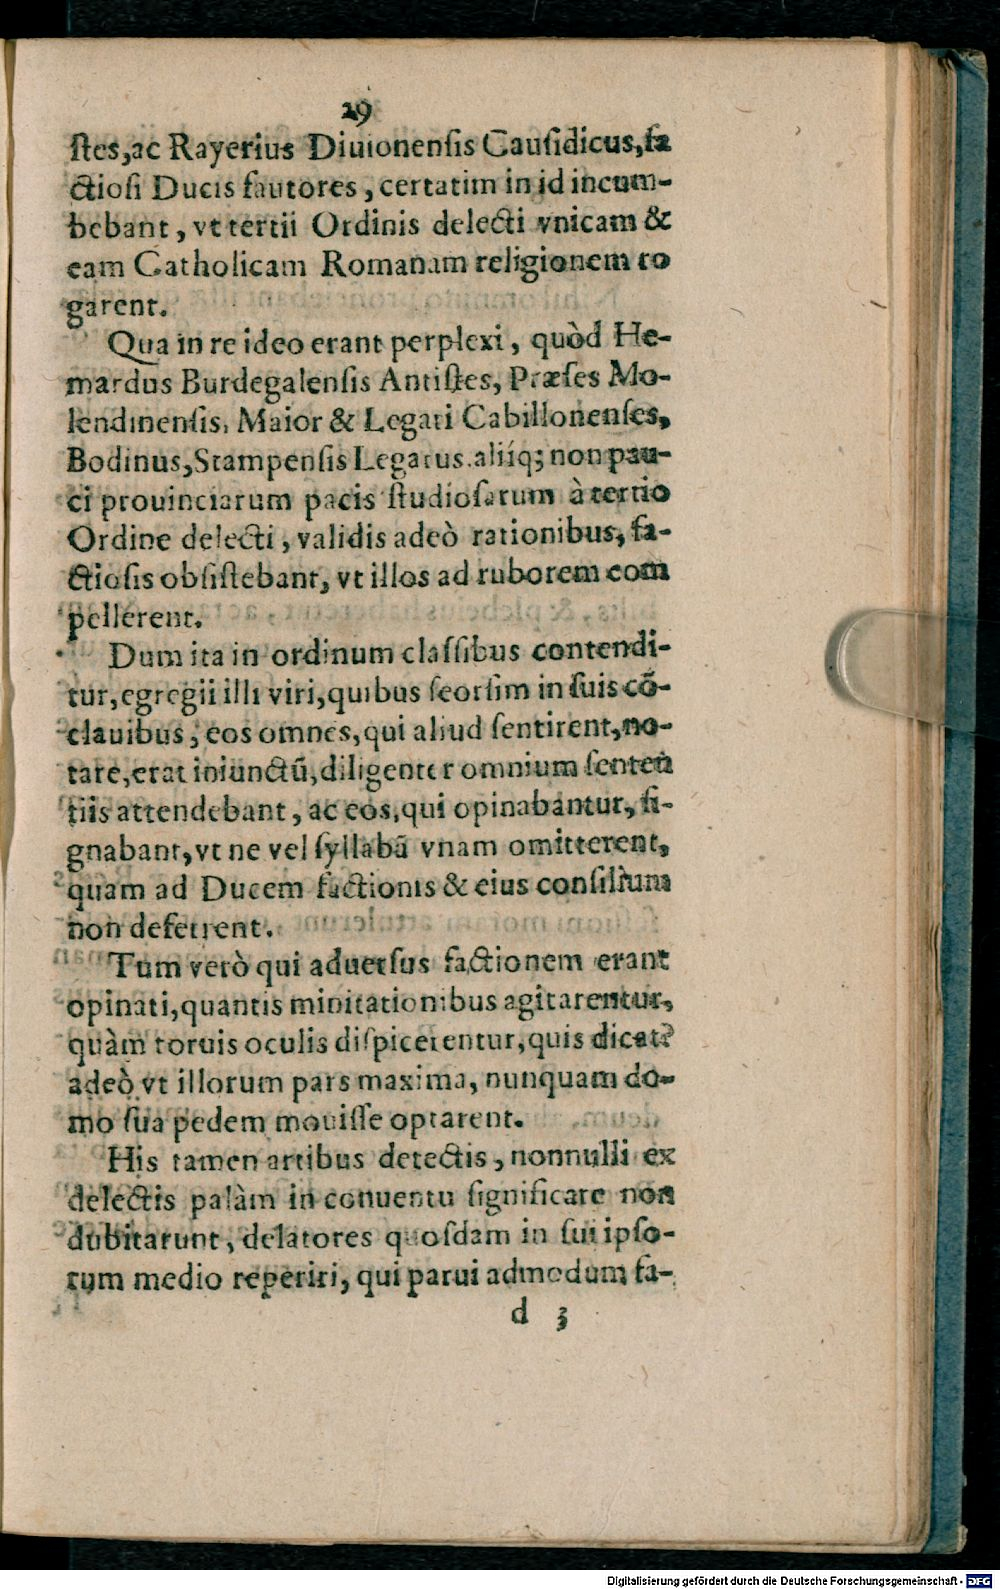 29
stes,ac Rayerius Diuionensis Causidicus,fa
ctiosi Ducis fautores, certatim in id incum-
bebant, vt tertii Ordinis delecti vnicam &
eam Catholicam Romanam religionem ro
garent.
Qua in re ideo erant perplexi, quòd He-
mardus Burdegalensis Antistes, Præses Mo-
lendinensis, Maior & Legati Cabillonenses,
Bodinus, Stampensis Legatus. aliíq; non pau-
ci prouinciarum pacis studiosarum à tertio
Ordine delecti, validis adeò rationibus, fa-
ctiosis obsistebant, vt illos ad ruborem com
pellerent.
Dum ita in ordinum classibus contendi-
tur, egregii illi viri, quibus seorsim in suis cō-
clauibus, eos omnes, qui aliud sentirent, no-
tare, erat iniunctū, diligenter omnium senten
tiis attendebant, ac eos, qui opinabantur, si-
gnabant, vt ne vel syllabā vnam omitterent,
quam ad Ducem factionis & eius consilium
non deferrent.
Tum verò qui aduersus factionem erant
opinati, quantis minitationibus agitarentur,
quàm toruis oculis dispicerentur, quis dicat?
adeò vt illorum pars maxima, nunquam do-
mo sua pedem mouisse optarent.
His tamen artibus detectis, nonnulli ex
delectis palàm in conuentu significare non
dubitarunt, delatores quosdam in sui ipso-
rum medio reperiri, qui parui admodum fa-
d 3
Digitalisierung gefördert durch die Deutsche Forschungsgemeinschaft - DFG